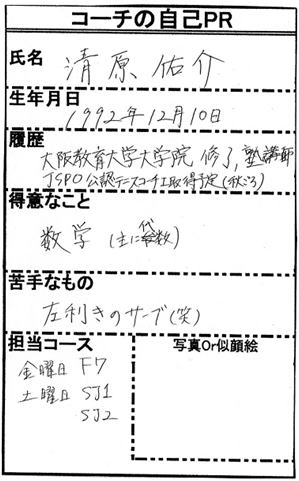 コーチの自己PR
氏名
清原佑介
生年月日
1992年12月10日
履歴
大阪教育大学大学院 修了, 塾講師
JSPO公認テニスコーチ1取得予定(秋ごろ)
得意なこと
数学 (主に代数)
苦手なもの
左利きのサーブ(笑)
担当コース
金曜日 F7
土曜日 SJ1
SJ2
写真Or似顔絵